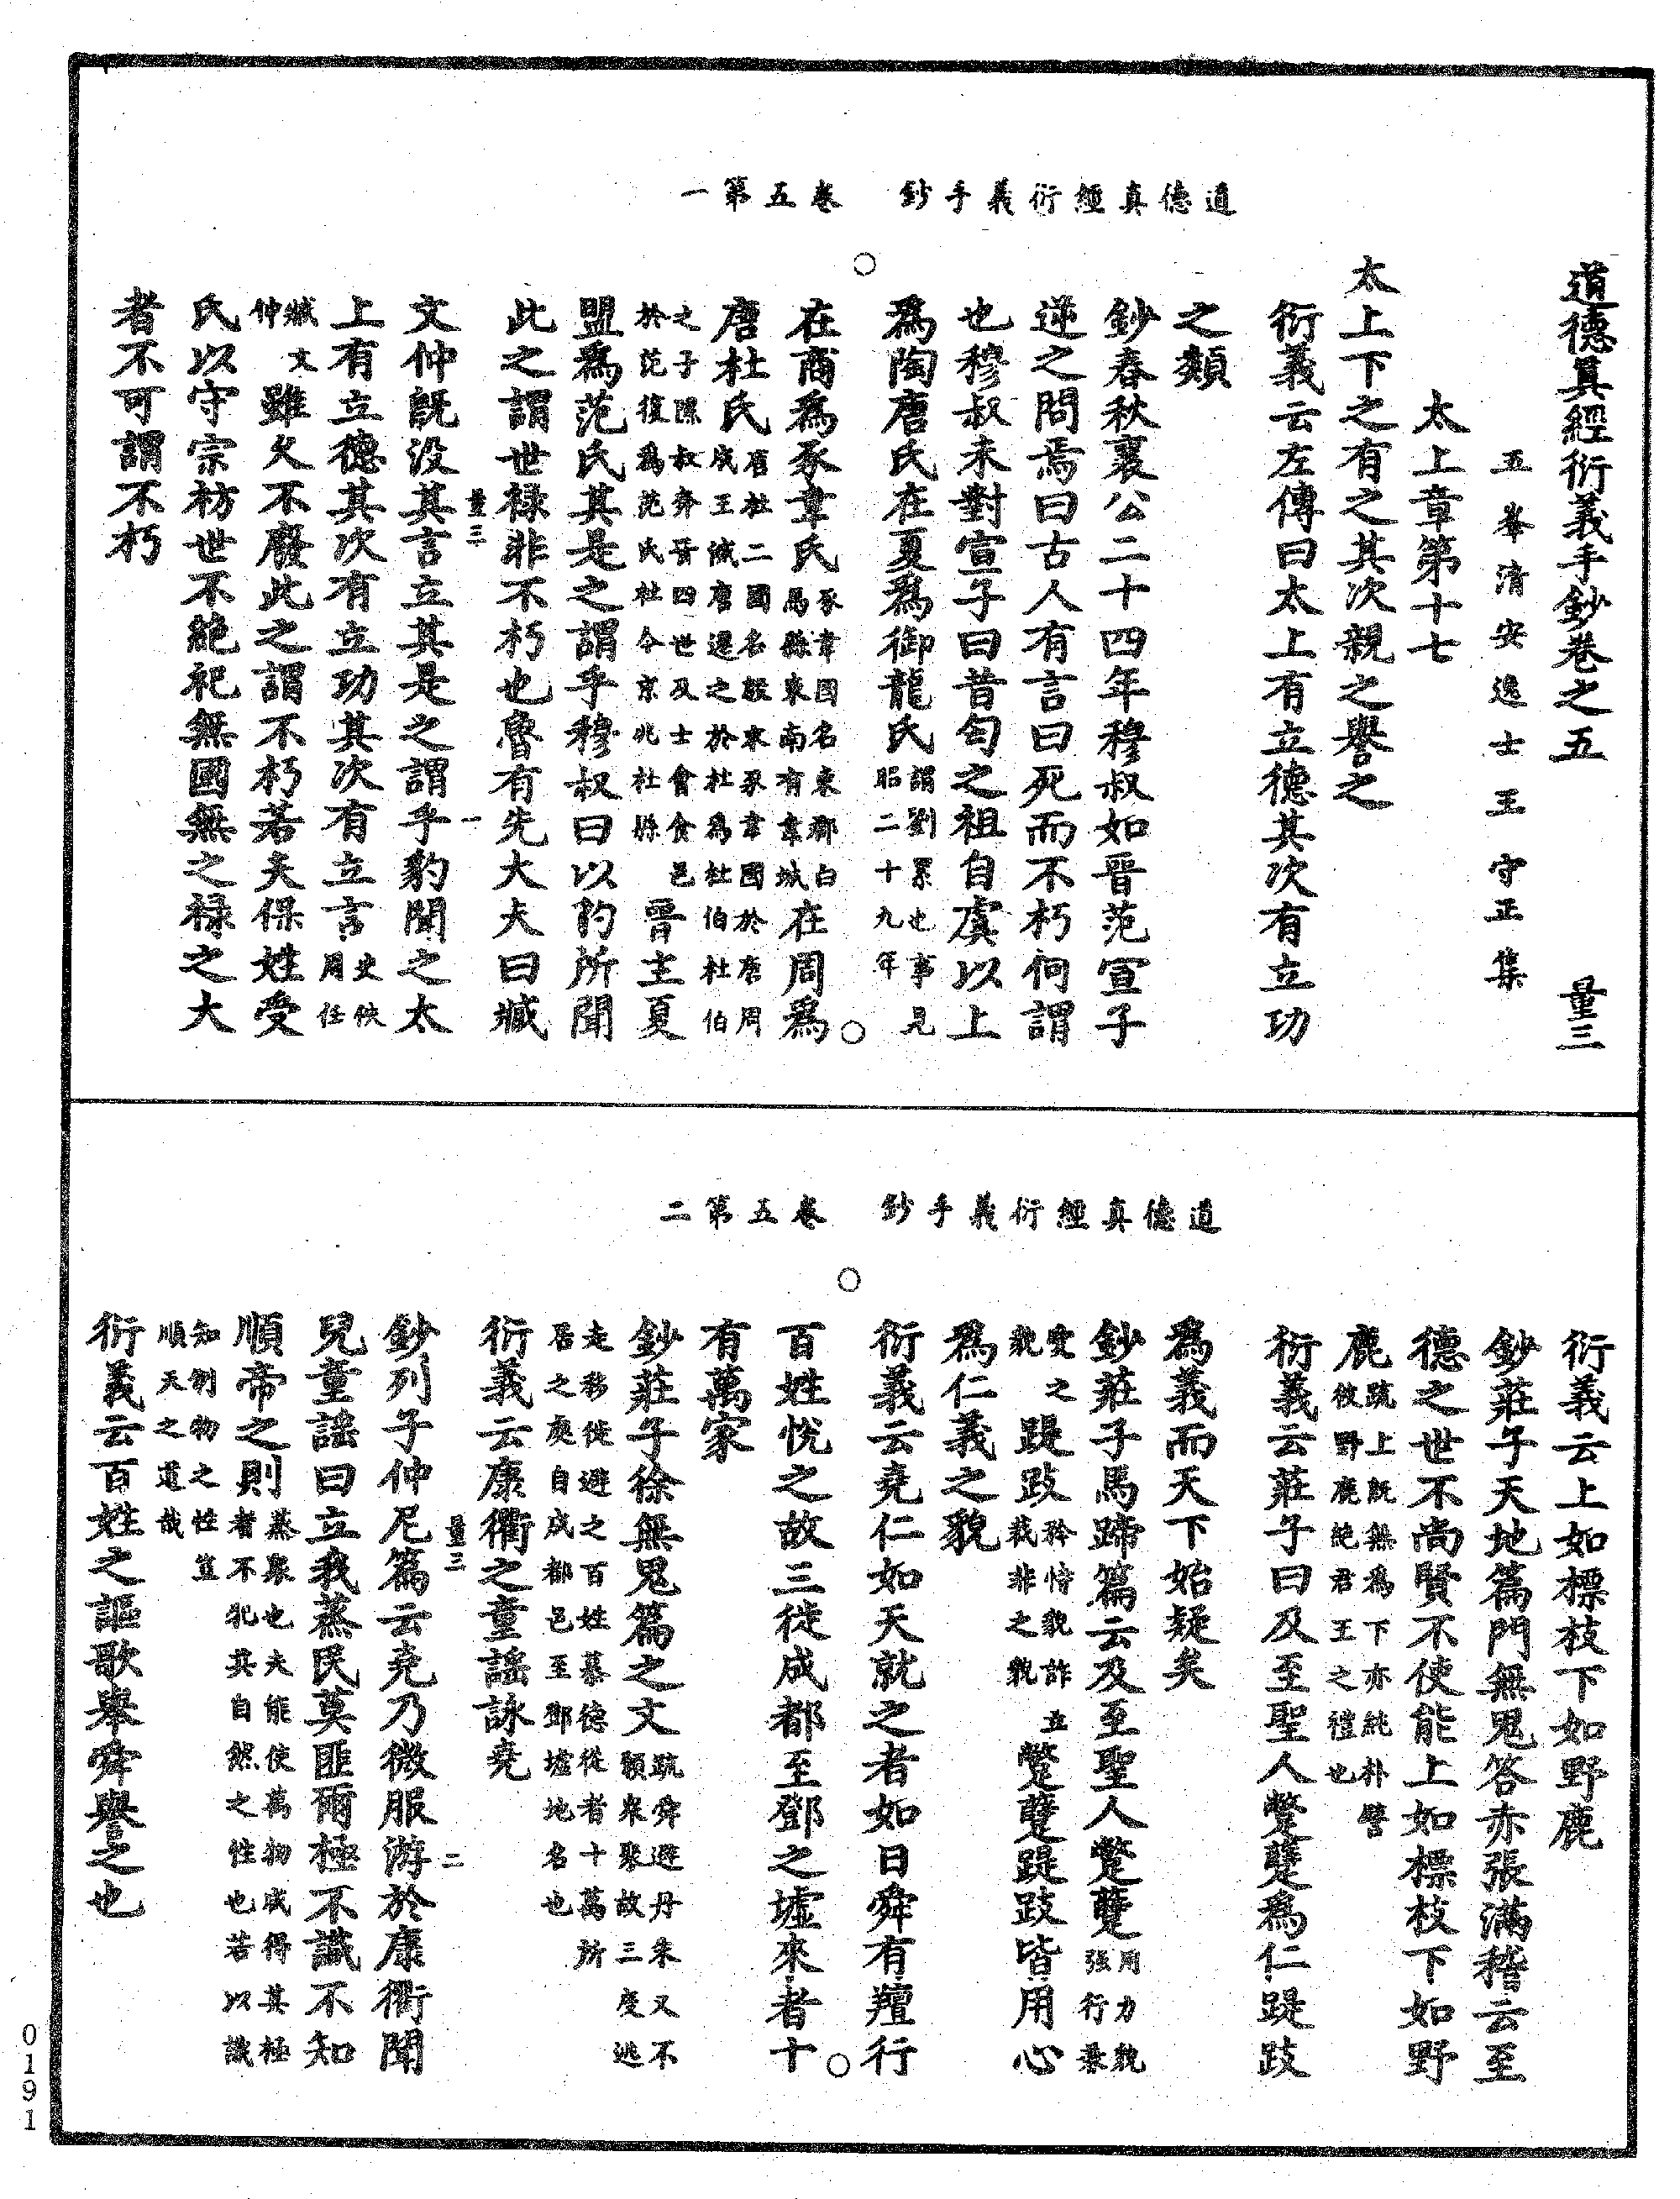 道德真經衍義手鈔　卷五第一
道德真經衍義手鈔卷之五　量三
五峯清安逸士王守正集
太上章第十七
太上下之有之其次親之譽之
衍義云左傳曰太上有立德其次有立功
之類
鈔春秋襄公二十四年穆叔如晉范宣子
逆之問焉曰古人有言曰死而不朽何謂
也穆叔未對宣子曰昔匄之祖自虞以上
爲陶唐氏在夏爲御龍氏謂劉累也事見昭二十九年
在商爲豕韋氏豕韋國名東郡白馬縣東南有韋城在周爲
唐杜氏唐杜二國名殷末豕韋國於唐周成王滅唐遷之於杜爲杜伯杜伯
之子隰叔奔晉四世及士會食邑於范復爲范氏杜今京兆杜縣晉主夏
盟爲范氏其是之謂乎穆叔曰以豹所聞
此之謂世祿非不朽也魯有先大夫曰臧
量三　一
文仲既沒其言立其是之謂乎豹聞之太
上有立德其次有立功其次有立言史佚周任
臧文仲雖久不廢此之謂不朽若夫保姓受
氏以守宗祊世不絕祀無國無之祿之大
者不可謂不朽
道德真經衍義手鈔　卷五第二
衍義云上如標枝下如野鹿
鈔莊子天地篇門無鬼答赤張滿稽云至
德之世不尚賢不使能上如標枝下如野
鹿疏上既無爲下亦純朴譬彼野鹿絕君王之禮也
衍義云莊子曰及至聖人蹩躠爲仁踶跂
爲義而天下始疑矣
鈔莊子馬蹄篇云及至聖人蹩躠用力貌強行兼
愛之貌踶跂矜恃貌詐立義非之貌蹩躠踶跂皆用心
爲仁義之貌
衍義云堯仁如天就之者如日舜有羶行
百姓悅之故三徙成都至鄧之墟來者十
有萬家
鈔莊子徐無鬼篇之文疏舜避丹朱又不願衆聚故三度逃
走移徙避之百姓慕德從者十萬所居之處自成都邑至鄧墟地名也
衍義云康衢之童謠詠堯
量三　二
鈔列子仲尼篇云堯乃微服游於康衢聞
兒童謠曰立我蒸民莫匪爾極不識不知
順帝之則蒸衆也夫能使萬物咸得其極者不犯其自然之性也若以識
知制物之性豈順天之道哉
衍義云百姓之謳歌舉舜譽之也
0191